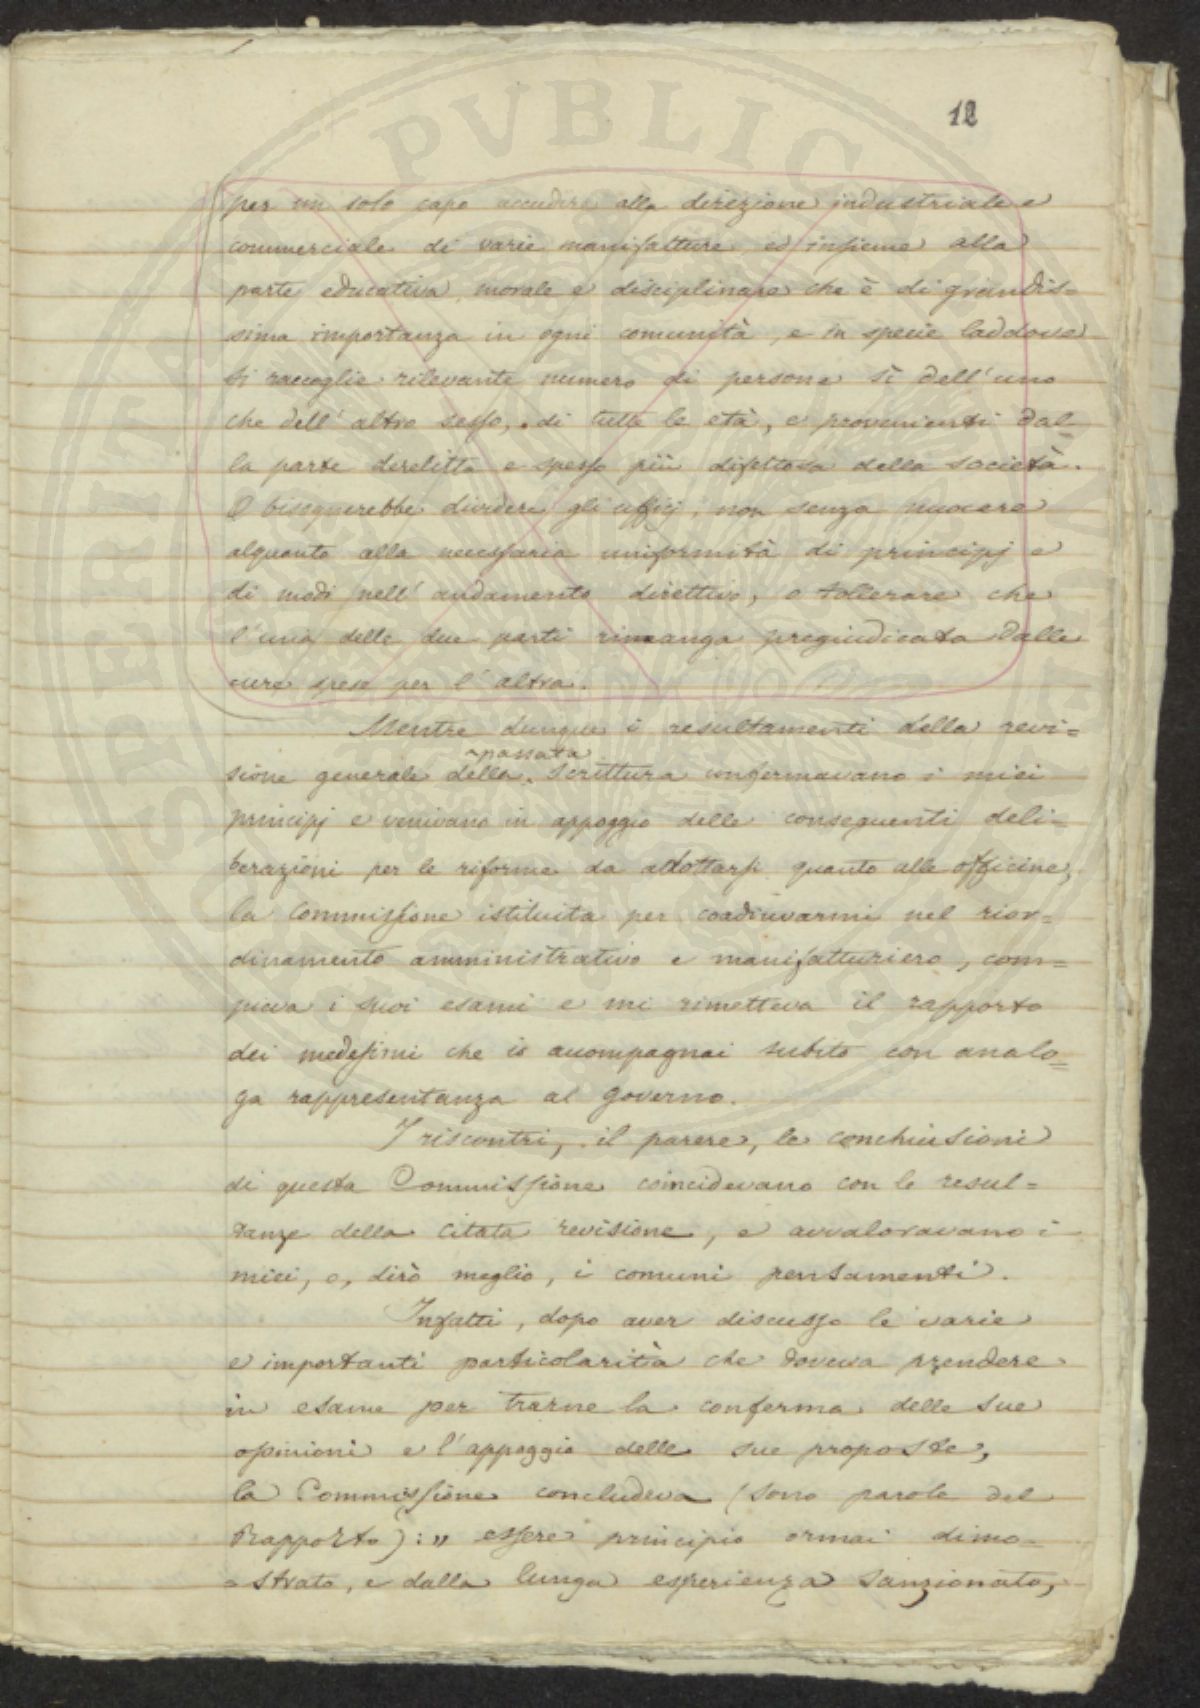 12
per un solo capo accudire alla direzione industriale e
commerciale di varie manifatture, ed insieme alla
parte educativa, morale e disciplinare che è di grandis=
sima importanza in ogni comunità, e in specie laddove
si raccoglie rilevante numero di persone sì dell'uno
che dell'altro sesso, di tutte le età, e provenienti dal=
la parte derelitta e spesso più difettosa della società.
O bisognerebbe dividere gli ufficj, non senza nuocere
alquanto alla necessaria uniformità di principj e
di modi nell'andamento direttivo, o tollerare che
l'una delle due parti rimanga pregiudicata dalle
cure spese per l'altra.
Mentre dunque i resultamenti della revi=
passata
sione generale della scrittura confermavano i miei
principj e venivano in appoggio delle conseguenti deli=
berazioni per le riforme da adottarsi quanto alle officine,
la Commissione istituita per coadiuvarmi nel rior=
dinamento amministrativo e manifatturiero, com=
pieva i suoi esami e mi rimetteva il rapporto
dei medesimi che io accompagnai subito con analo=
ga rappresentanza al Governo.
I riscontri, il parere, le conchiusioni
di questa Commissione coincidevano con le resul=
tanze della citata revisione, e avvaloravano i
miei, o, dirò meglio, i comuni pensamenti.
Infatti, dopo aver discusso le varie
e importanti particolarità che doveva prendere
in esame per trarne la conferma delle sue
opinioni e l'appoggio delle sue proposte,
la Commissione concludeva (sono parole del
Rapporto): " essere principio ormai dimo=
=strato, e dalla lunga esperienza sanzionato,
PVBLIC